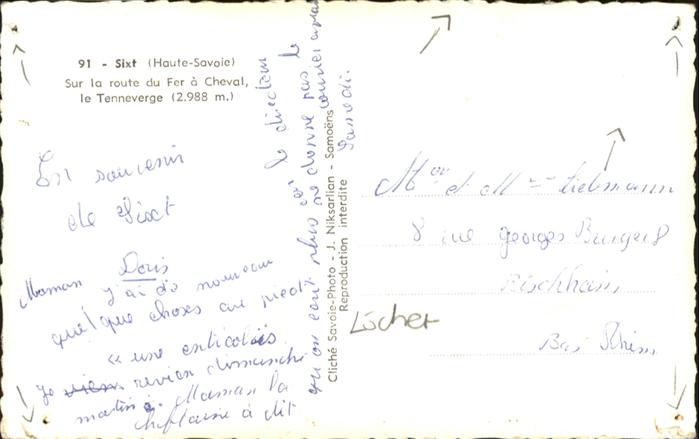 91 - Sixt (Haute-Savoie)
Sur la route du Fer à Cheval,
le Tenneverge (2.988 m.)
En souvenir
de Sixt
Doris
Maman y'ai de nouveau
quelque choses au piedt
« une enticolois
je revien dimanche
matin. Maman la
cheftaine à dit
qu'on eant plus le directeur
ne donne pas le
courrier
samedi.
Cliché Savoie-Photo - J. Niksarlian - Samoëns
Reproduction interdite
Mor et Mme Liebmann
8 rue georges
Bischheim
Bas Rhin
Löcher